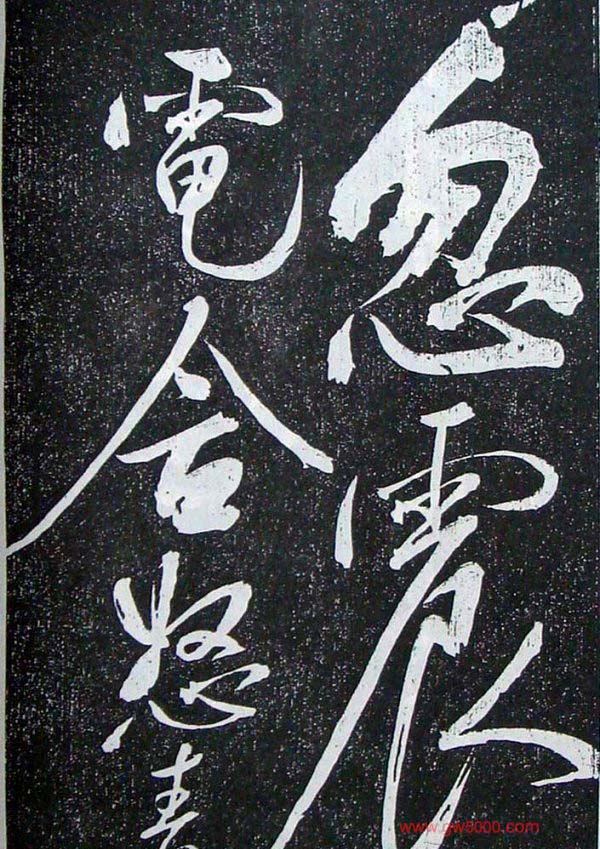 忽震
電含怒
www.gw8000.com